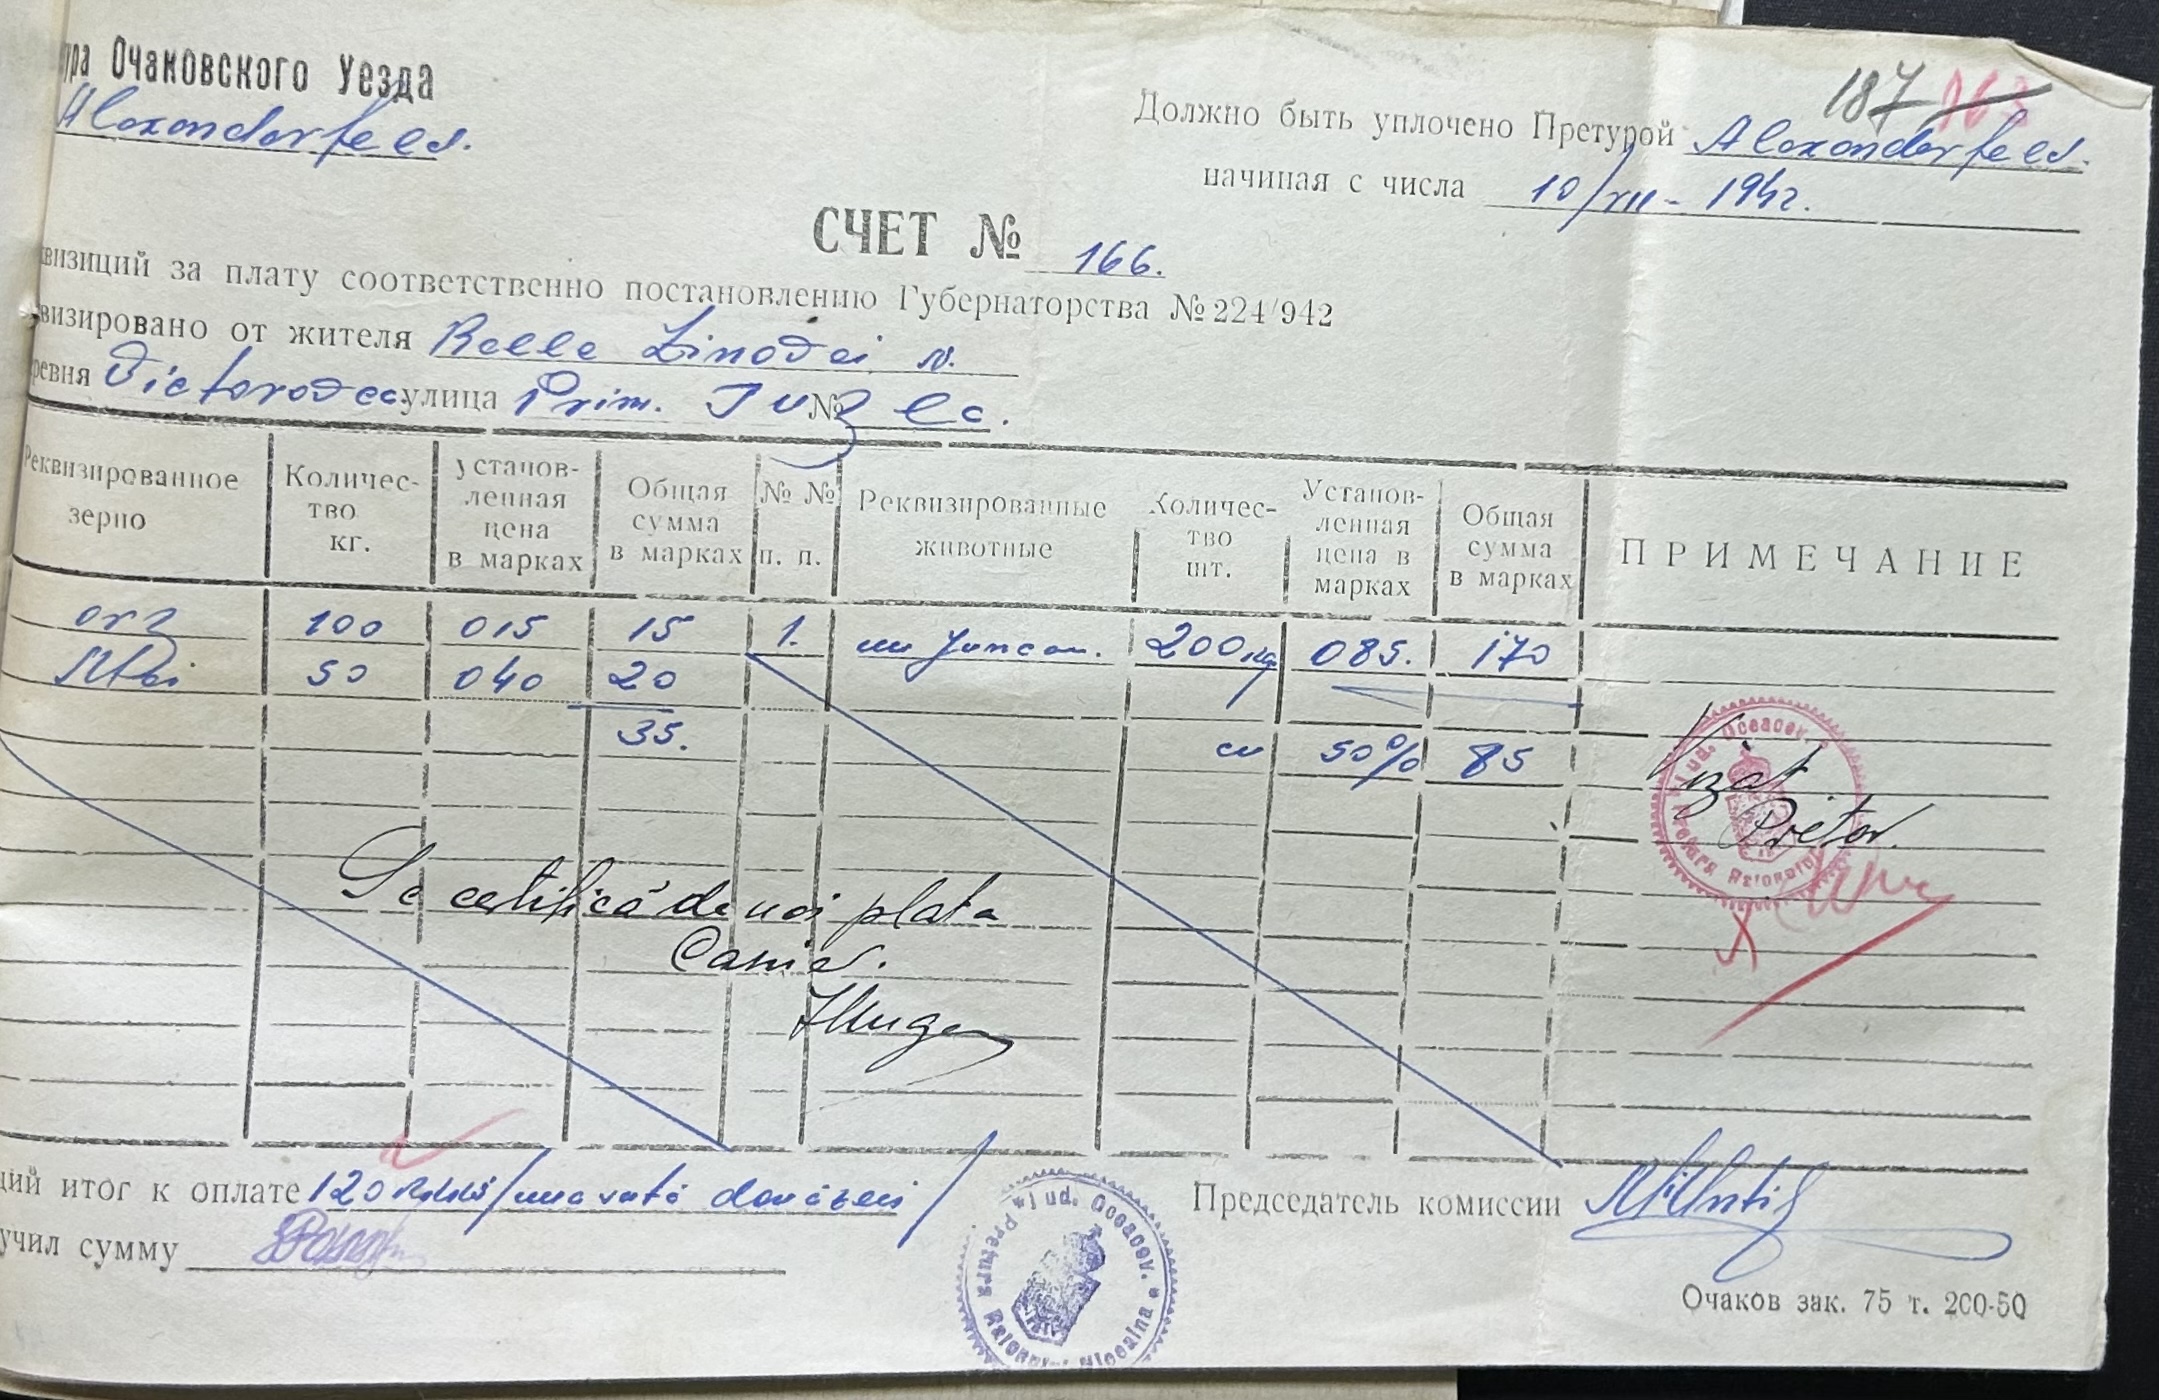 ура Очаковского Уезда
Alexanderfeld.
187 163
Должно быть уплочено Претурой Alexanderfeld.
начиная с числа 10/XII - 1942.
СЧЕТ № 166.
квизиций за плату соответственно постановлению Губернаторства № 224/942
визировано от жителя
ревня улица Prim. №
Реквизированное зерно
Количес-тво кг.
Установ-ленная цена в марках
Общая сумма в марках
№ № п. п.
Реквизированные животные
Количес-тво шт.
Установ-ленная цена в марках
Общая сумма в марках
ПРИМЕЧАНИЕ
orz 100 015 15 1. un juncan. 200 kg 085. 170
50 040 20
35. cu 50% 85
Vizat
Pretor.
Se certifică de noi plata
Casier.
щий итог к оплате 120 /una sută douăzeci/
Председатель комиссии
учил сумму
Jud. Oceacov. * Pretura Raionului
Jud. Oceacov. * Pretura Raionului
Очаков зак. 75 т. 200-50